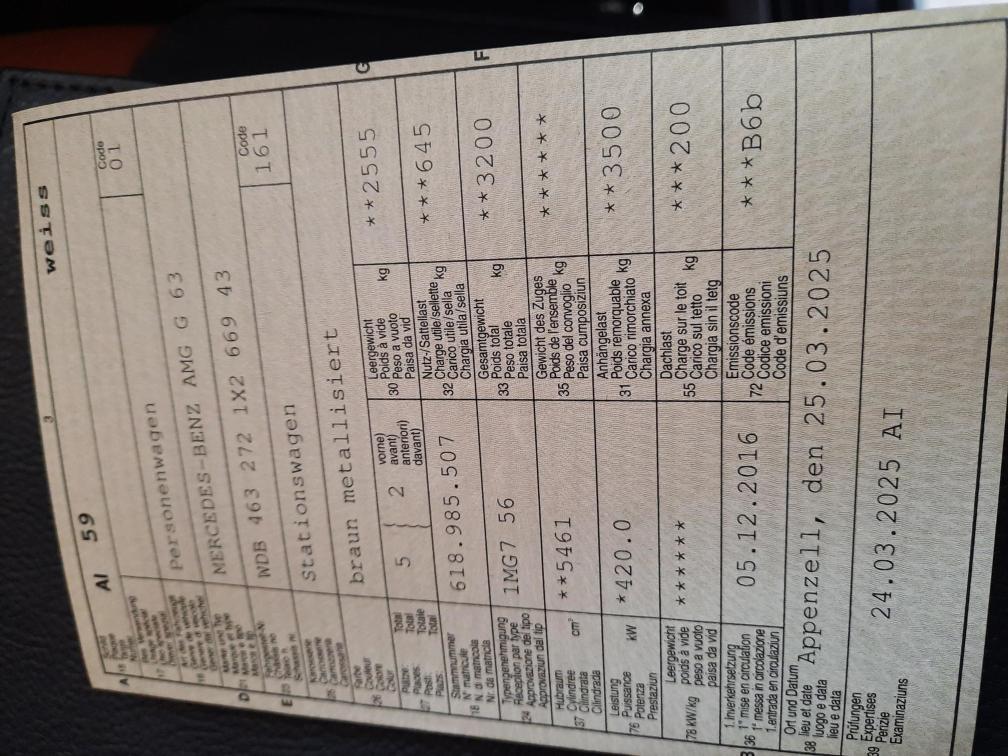 3 weiss
AI 59
Code
01
Personenwagen
MERCEDES-BENZ AMG G 63
WDB 463 272 1X2 669 43
Code
161
Stationswagen
braun metallisiert
G
26 Farbe
Couleur
Colore
Colur
27 Plätze: Total
Places: Total
Posti: Totale
Plazs: Total
5 } 2
vorne)
avant)
anteriori)
davant)
30 Leergewicht
Poids à vide
Peso a vuoto
Paisa da vid
kg
**2555
18 Stammnummer
N° matricule
N. di matricola
Nr. da matricla
618.985.507
32 Nutz-/Sattellast
Charge utile/sellette kg
Carico utile/sella
Chargia utila/sella
***645
F
24 Typengenehmigung
Réception par type
Approvazione del tipo
Approvaziun dal tip
1MG7 56
33 Gesamtgewicht
Poids total
Peso totale
Paisa totala
kg
**3200
37 Hubraum
Cylindrée
Cilindrata
Cilindrada
cm³
**5461
35 Gewicht des Zuges
Poids de l'ensemble kg
Peso del convoglio
Paisa cumposiziun
******
76 Leistung
Puissance
Potenza
Prestaziun
kW
*420.0
31 Anhängelast
Poids remorquable kg
Carico rimorchiato
Chargia annexa
**3500
78 kW/kg
Leergewicht
poids à vide
peso a vuoto
paisa da vid
******
55 Dachlast
Charge sur le toit
Carico sul tetto
Chargia sin il tetg
kg
***200
B 36 1. Inverkehrsetzung
1re mise en circulation
1a messa in circolazione
1. entrada en circulaziun
05.12.2016
72 Emissionscode
Code émissions
Codice emissioni
Code d'emissiuns
***B6b
38 Ort und Datum
lieu et date
luogo e data
lieu e data
Appenzell, den 25.03.2025
39 Prüfungen
Expertises
Perizie
Examinaziuns
24.03.2025 AI